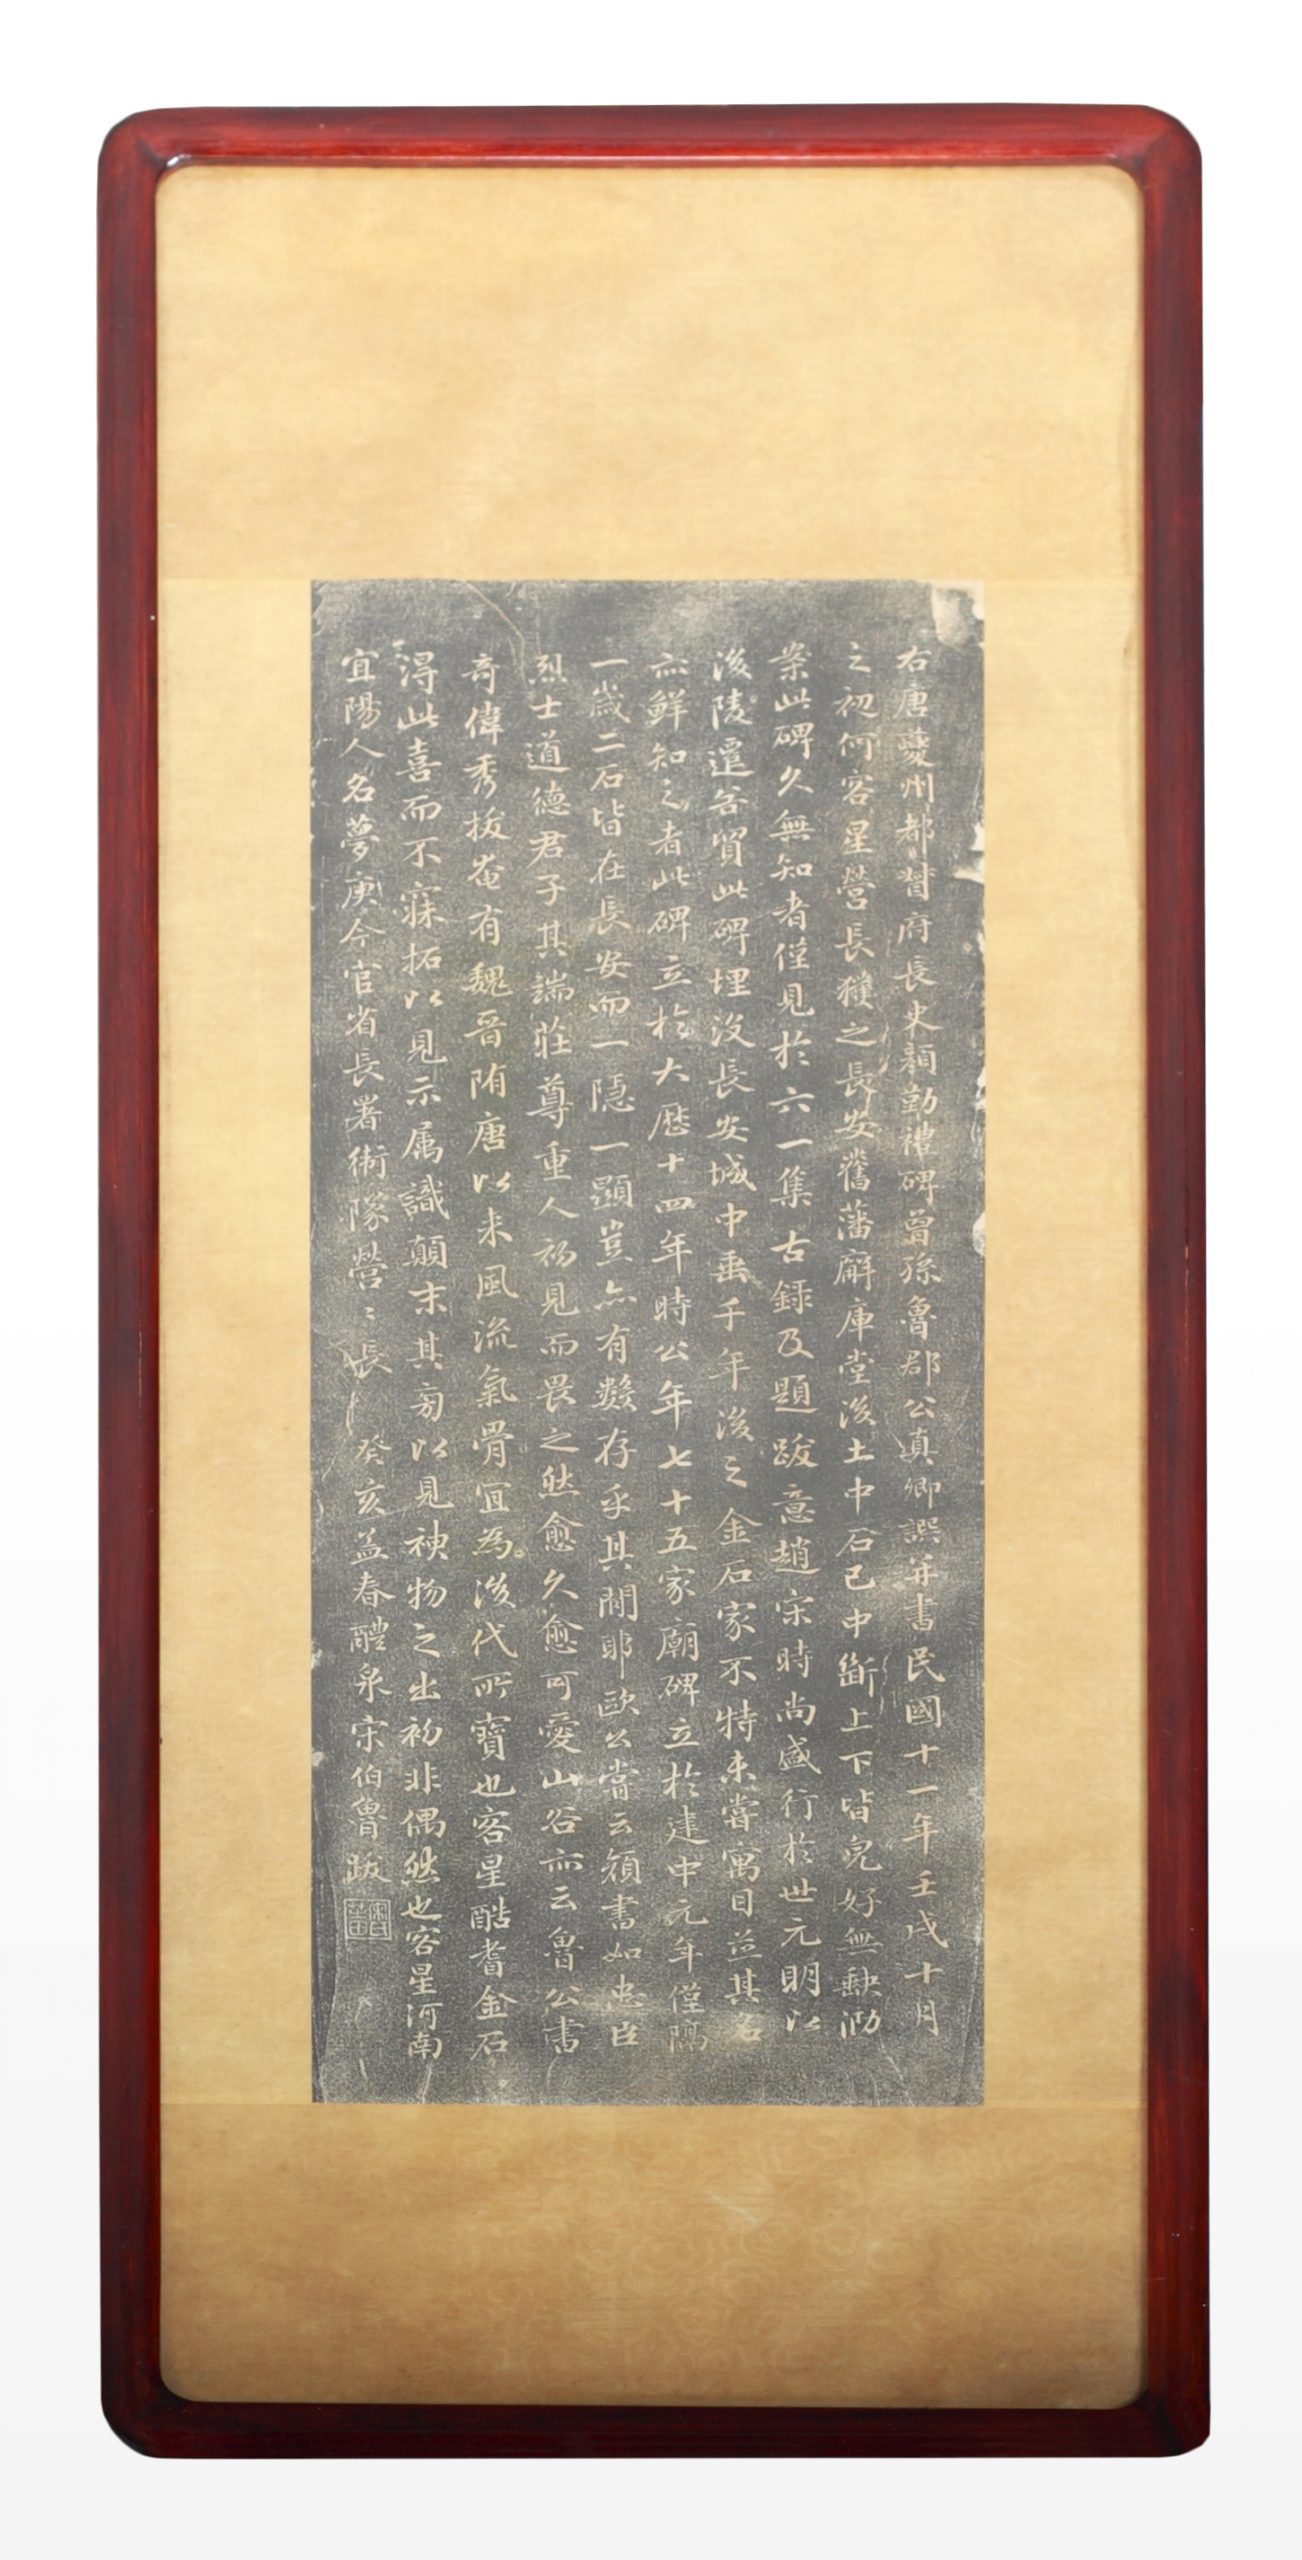 右唐夔州都督府長史顏勤禮碑曾孫魯郡公真卿譔并書民國十一年壬戌十月
之初何客星營長獲之長安舊藩廨庫堂後土中石已中斷上下皆完好無缺泐
案此碑久無知者僅見於六一集古錄及題跋意趙宋時尚盛行於世元明以
後陵遷谷貿此碑埋沒長安城中垂千年後之金石家不特未嘗寓目並其名
亦鮮知之者此碑立於大歷十四年時公年七十五家廟碑立於建中元年僅隔
一歲二石皆在長安而一隱一顯豈亦有數存乎其間耶歐公嘗云顏書如忠臣
烈士道德君子其端莊尊重人初見而畏之然愈久愈可愛山谷亦云魯公書
奇偉秀拔奄有魏晉隋唐以來風流氣骨宜為後代所寶也客星酷耆金石
得此喜而不寐拓以見示属識顛末其旁以見神物之出初非偶然也客星河南
宜陽人名夢庚今官省長署衛隊營〻長 癸亥孟春醴泉宋伯魯跋